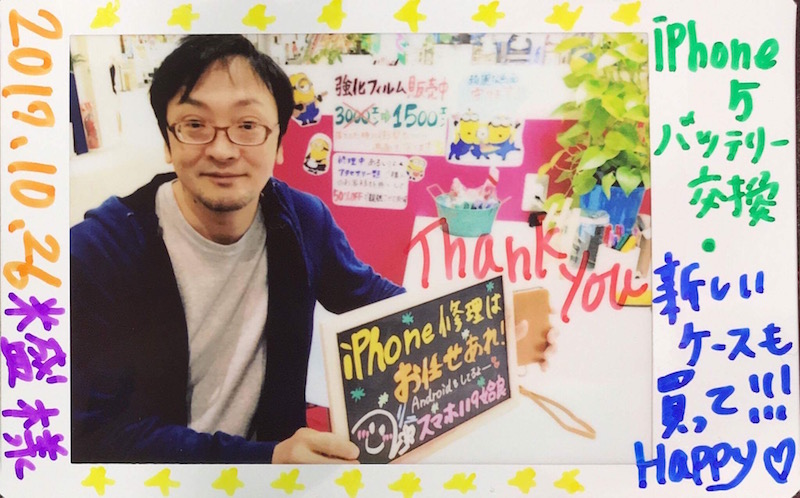 2019.10.26
iPhone
5
バッテリー
交換
・
新しい
ケースも
買って!!!
Happy♡
Thank
You
強化フィルム販売中
3000 1500
50%OFF
iPhone修理は
お任せあれ!
Androidもしてるよー
スマホ119姶良